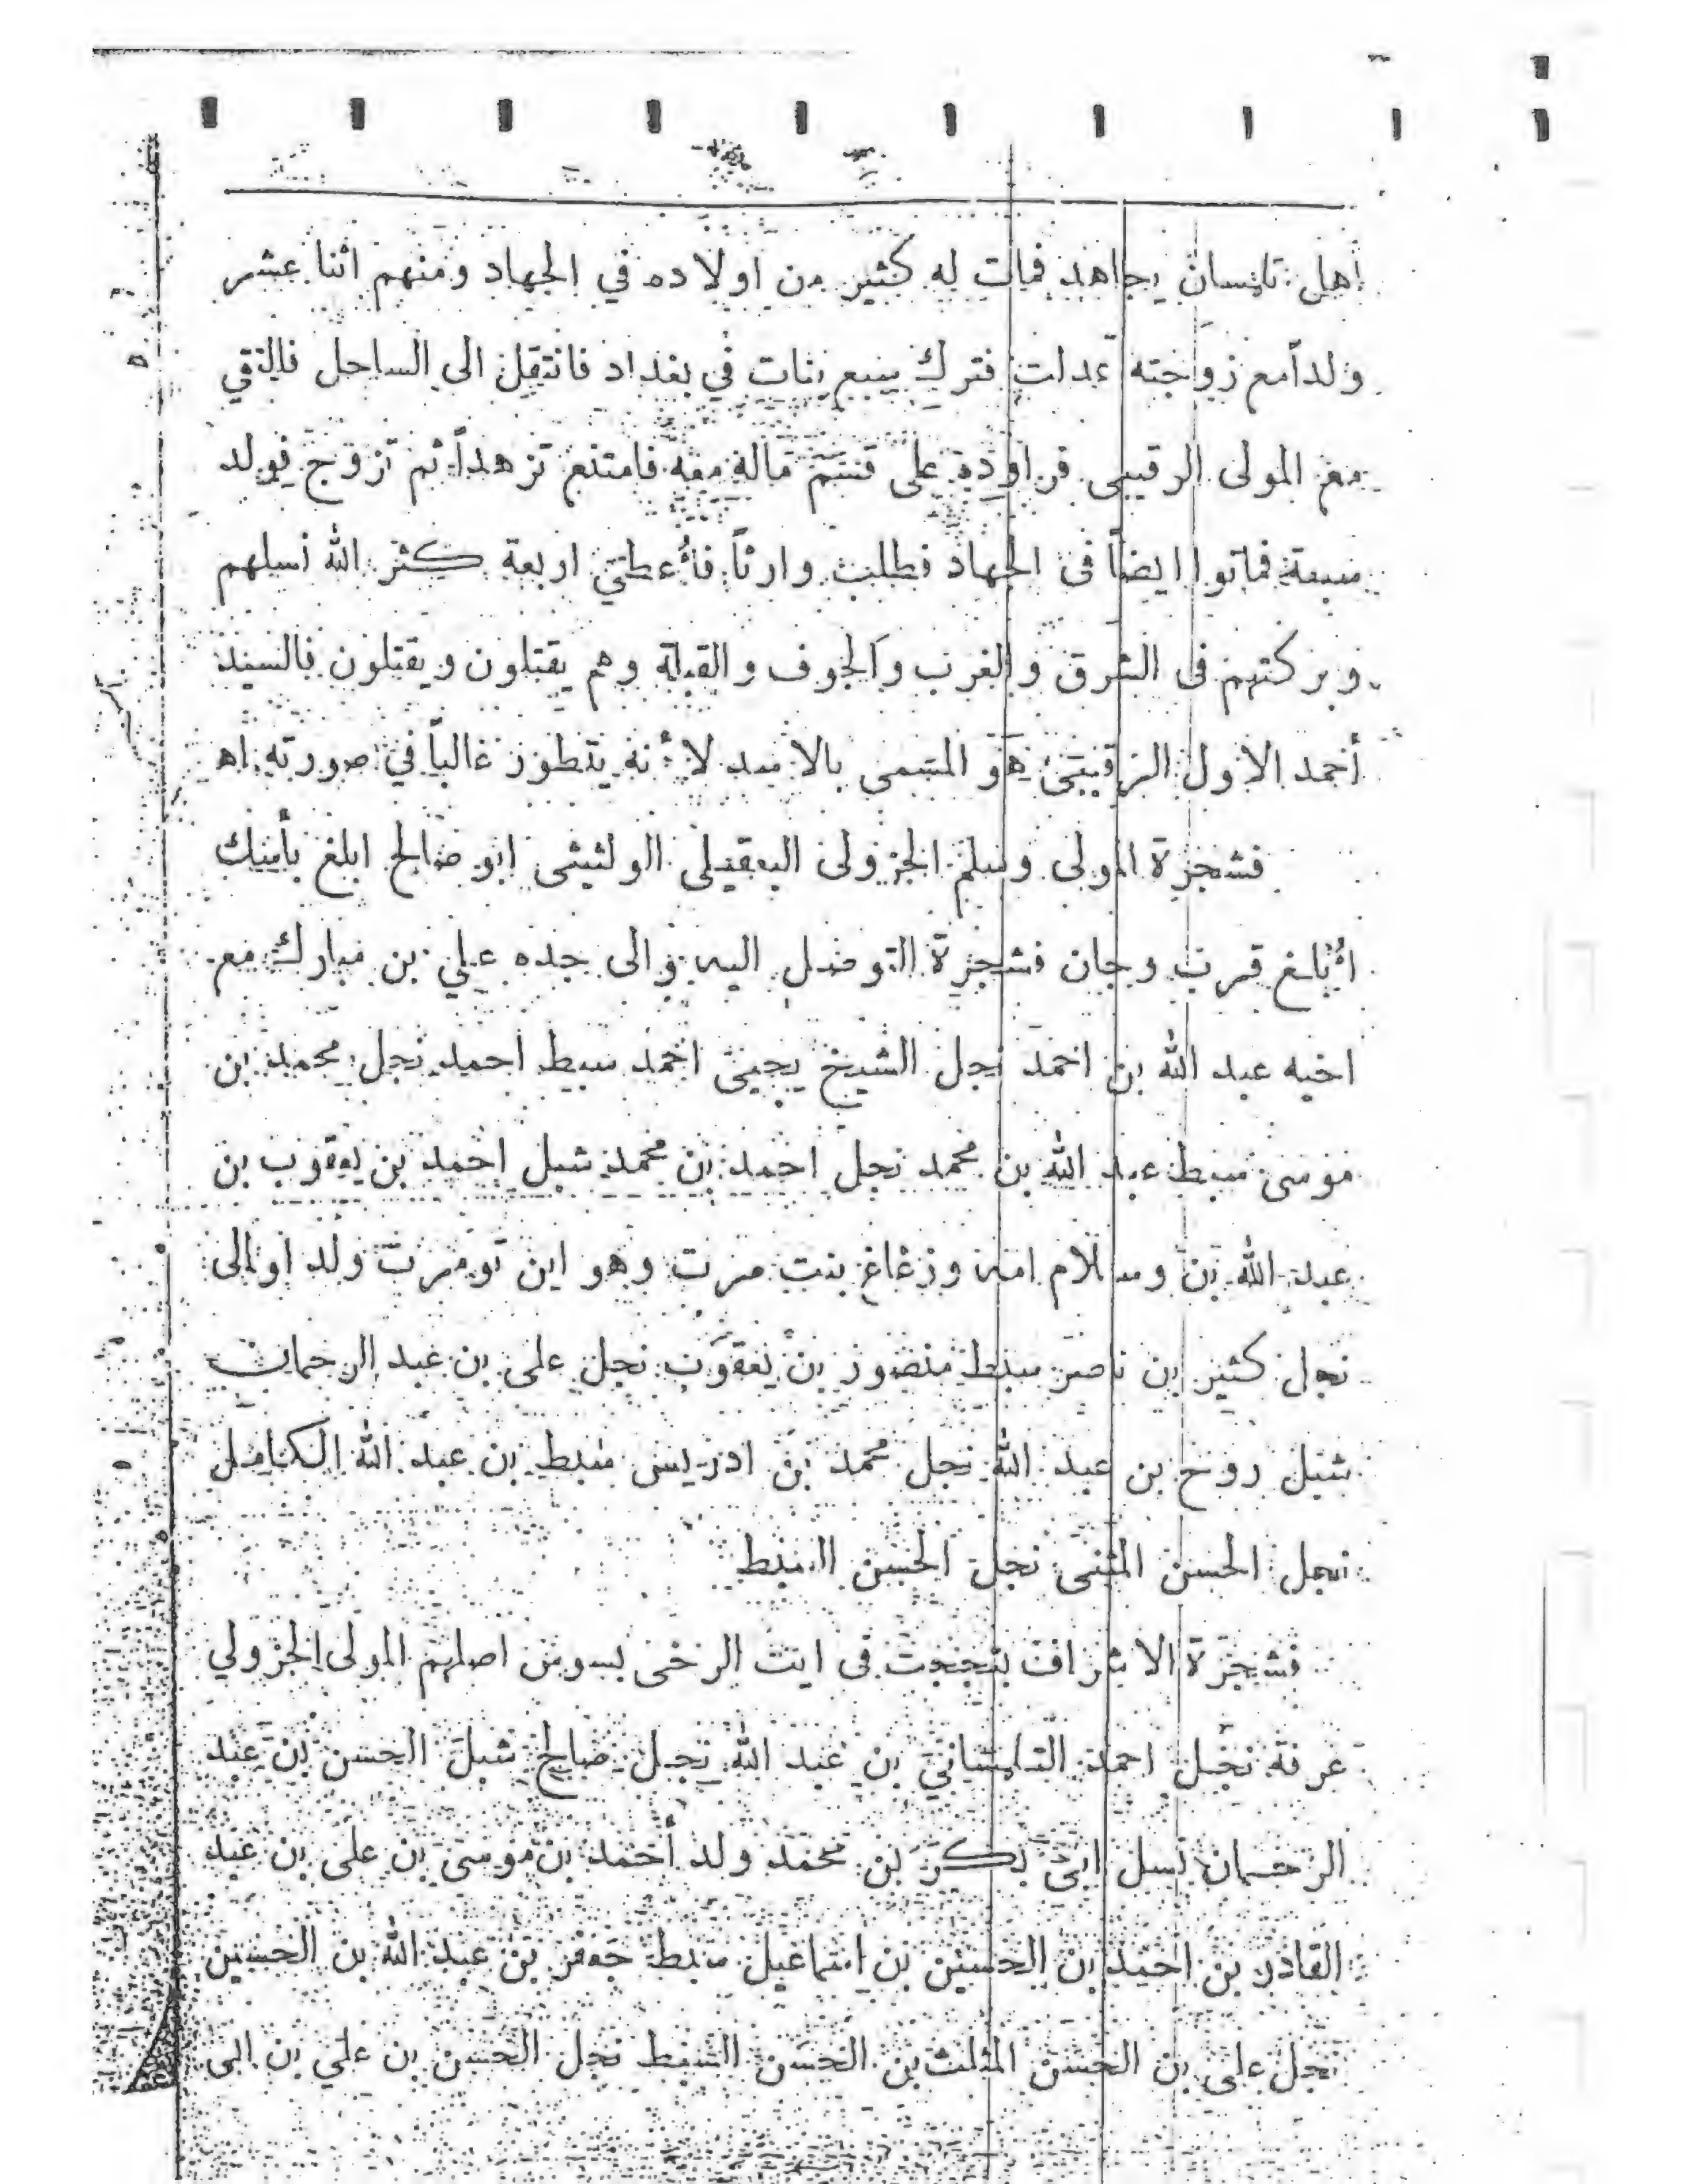 اهل تلمسان يجاهد فمات له كثير من اولاده في الجهاد ومنهم اثنا عشر
ولداً مع زوجته عدلت فترك سبع بنات في بغداد فانتقل الى الساحل فالتقي
مع المولى الرقيبى فراوده على قسم ماله معه فامتنع تزهداً ثم تزوج فولد
سبعة فماتوا ايضاً فى الجهاد فطلب وارثاً فأعطي اربعة كثر الله نسلهم
وبركتهم فى الشرق والغرب والجوف والقبلة وهم يقتلون ويقتلون فالسيد
أحمد الاول الرقيبي هو المسمى بالاسد لأنه يتطور غالباً في صورته اه
فشجرة المولى وسلم الجزولى البعقيلى الولتيتى ابو صالح ابلغ بأمنك
ابلغ قرب وجان فشجرة التوصل اليه والى جده علي بن مبارك مع
اخيه عبد الله بن احمد نجل الشيخ يحيى احمد سبط احمد نجل محمد بن
موسى سبط عبد الله بن محمد نجل احمد بن محمد شبل احمد بن يعقوب بن
عبد الله بن وسلام امه وزغاغ بنت مزت وهو ابن تومرت ولد اومالى
نجل كثير بن ناصر سبط منصور بن يعقوب نجل على بن عبد الرحمان
شبل روح بن عبد الله نجل محمد بن ادريس سبط بن عبد الله الكامل
نجل الحسن المثنى نجل الحسن السبط
فشجرة الاشراف فى ايت الرخى بسوس اصلهم المولى الجزولي
عرفة نجل احمد التلمساني بن عبد الله نجل صالح شبل الحسن بن عبد
الرحمان نسل ابى بكر بن محمد ولد أحمد بن موسى بن على بن عبد
القادر بن احمد بن الحسين بن اسماعيل سبط جعفر بن عبد الله بن الحسين
نجل على بن الحسن المثلث بن الحسن السبط نجل الحسن بن علي بن ابى